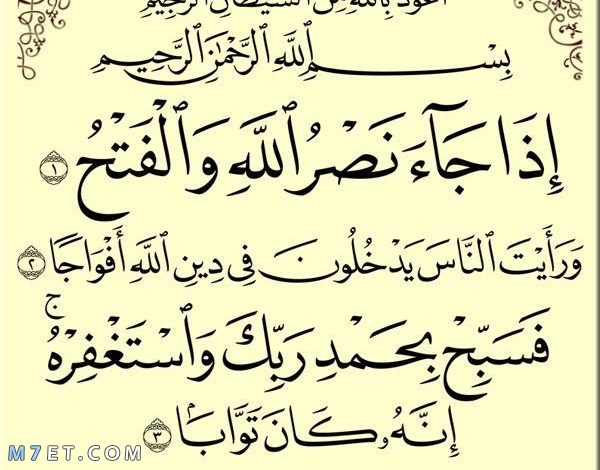 أعوذ بالله من الشيطان الرجيم
بِسْمِ ٱللَّهِ ٱلرَّحْمَٰنِ ٱلرَّحِيمِ
إِذَا جَآءَ نَصْرُ ٱللَّهِ وَٱلْفَتْحُ ١
وَرَأَيْتَ ٱلنَّاسَ يَدْخُلُونَ فِى دِينِ ٱللَّهِ أَفْوَاجًا ٢
فَسَبِّحْ بِحَمْدِ رَبِّكَ وَٱسْتَغْفِرْهُ ۚ
إِنَّهُۥ كَانَ تَوَّابًۢا ٣
M7ET.COM